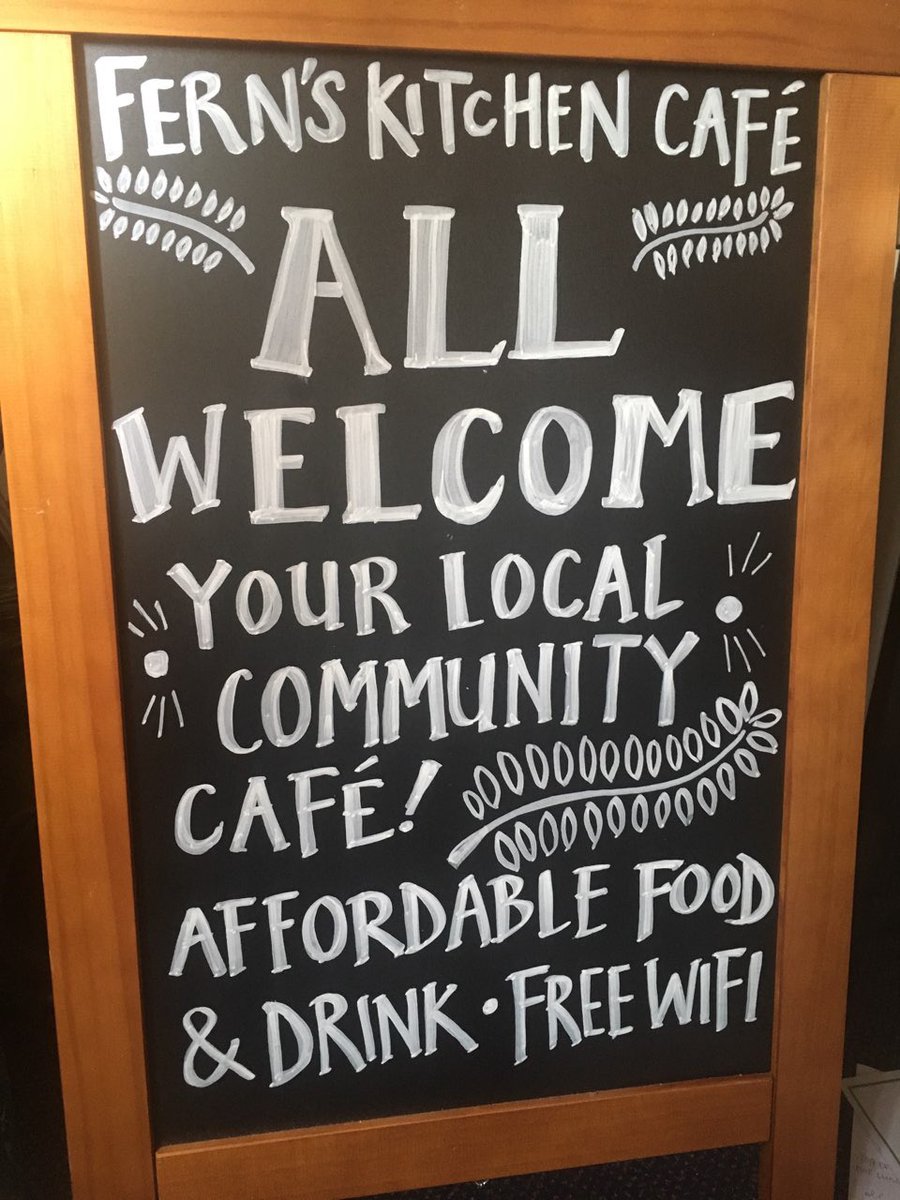 FERN'S KITCHEN CAFÉ
ALL
WELCOME
YOUR LOCAL
COMMUNITY
CAFÉ!
AFFORDABLE FOOD
& DRINK • FREE WIFI